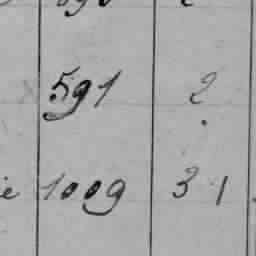 591 2
1009 31